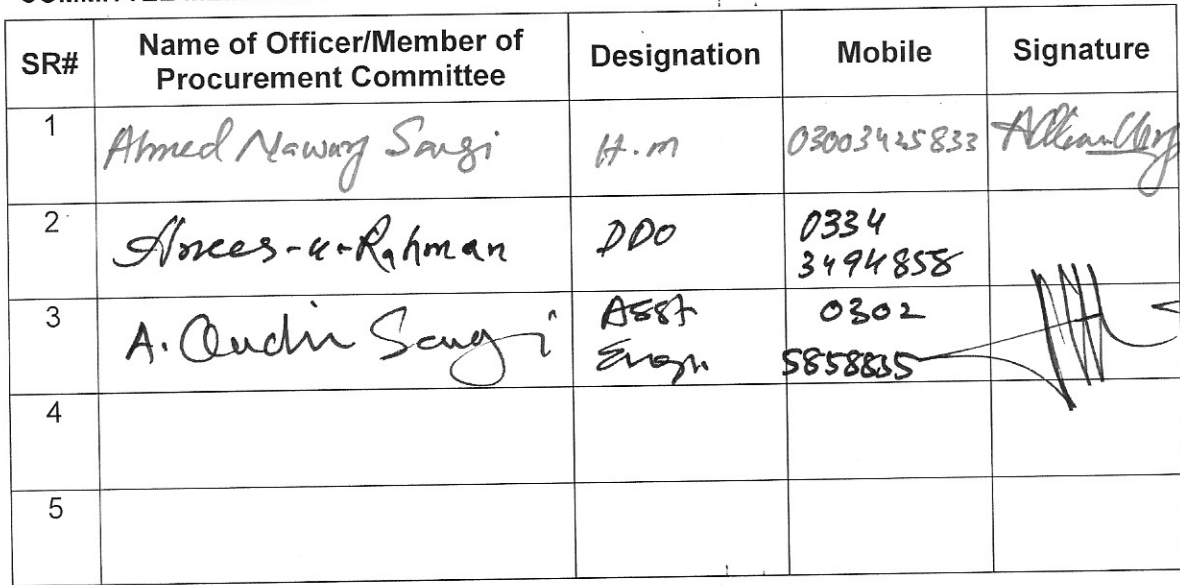 SR# Name of Officer/Member of Procurement Committee Designation Mobile Signature
1 Ahmed Nawaz Sangi H.M 03003425833
2 Anees-u-Rahman DDO 0334 3494858
3 A. Qudir Sangi Asst Engr 0302 5858835
4
5